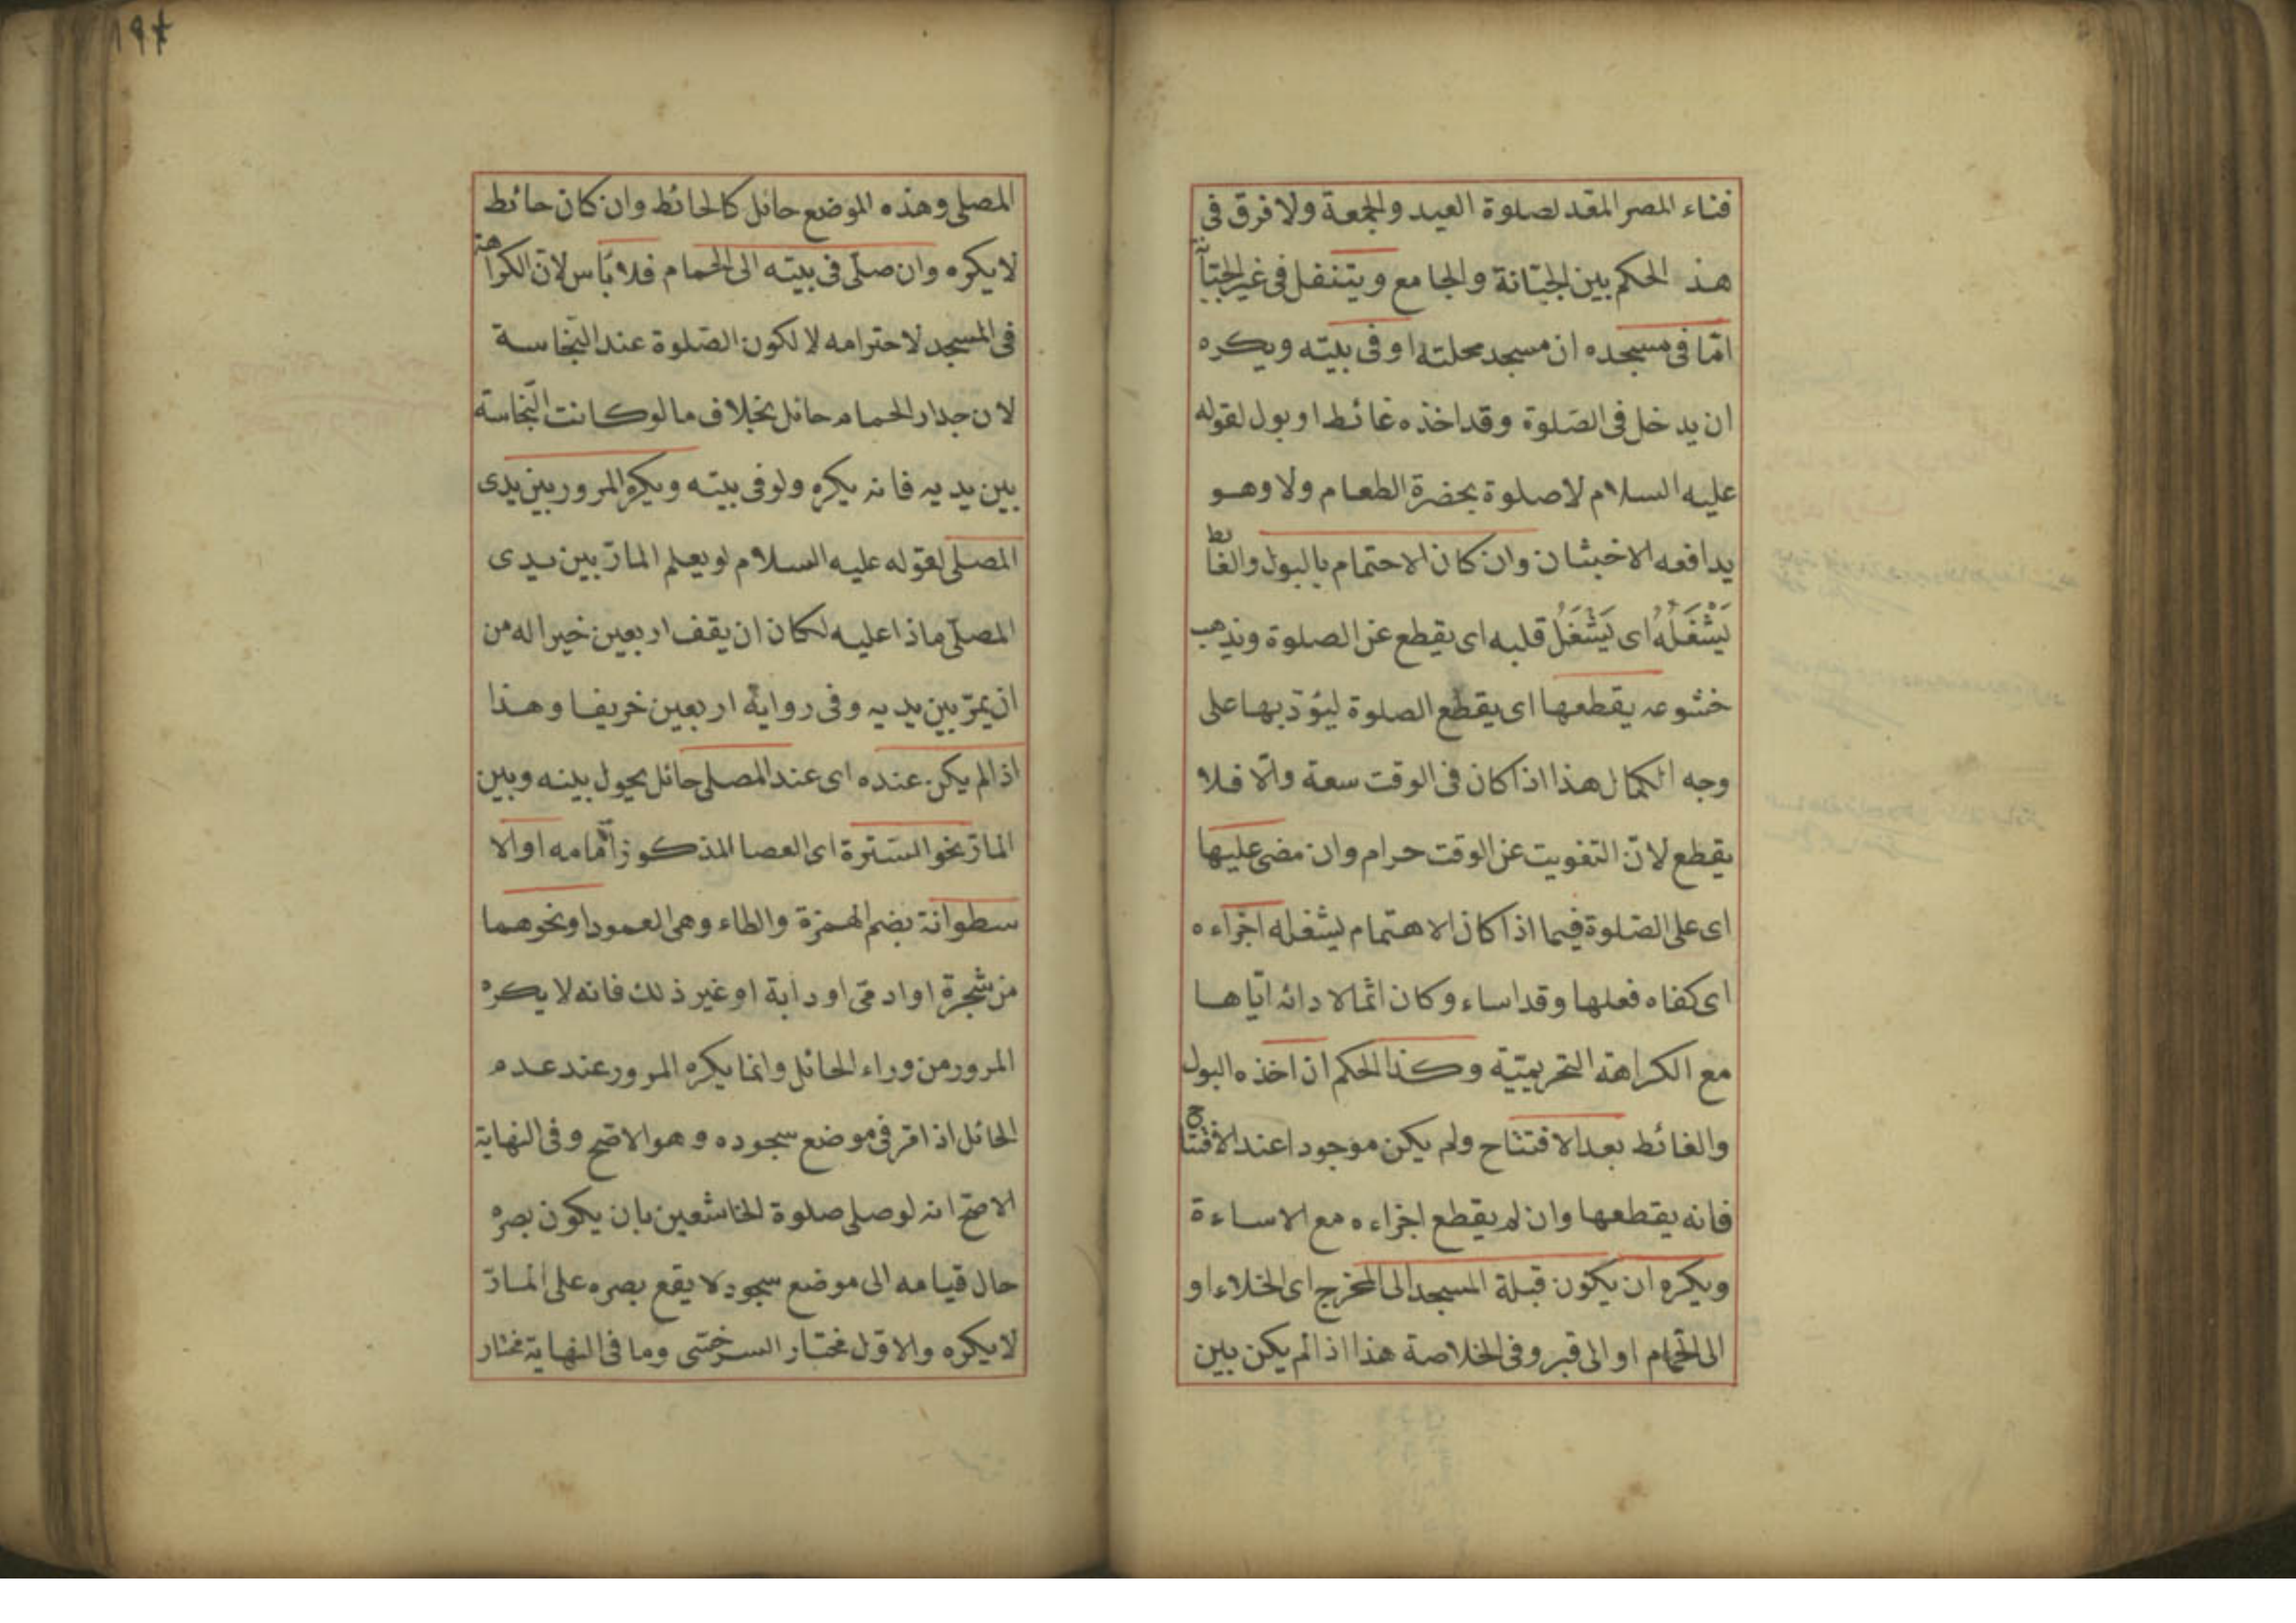 فناء المصر المقد لصلوة العيد والجمعة ولا فرق فى
هذ الحكم بين الجبّانة والجامع ويتنفل فى غير الجبّآنة
امّا فى مسجده ان مسجد محلته او فى بيته ويكره
ان يدخل فى الصّلوة وقد اخذه غائط او بول لقوله
عليه السلام لا صلوة بحضرة الطعام ولا وهو
يدافعه الاخبثان وان كان الاحتمام بالبول والغائط
يَشْغَلُهُ اى يَشْغَلُ قلبه اى يقطع عن الصلوة ويذهب
خشوعه يقطعها اى يقطع الصلوة ليؤدّ بها على
وجه الكمال هذا اذا كان فى الوقت سعة والّا فلا
يقطع لانّ التفويت عن الوقت حرام وان مضى عليها
اى على الصّلوة فيما اذا كان الاهتمام يشغله اجزاءه
اى كفاه فعلها وقد اساء وكان اثما لادائه ايّاها
مع الكراهة التحريميّة وكذا الحكم ان اخذه البول
والغائط بعد الافتتاح ولم يكن موجودا عند الافتتاح
فانه يقطعها وان لم يقطع اجزاءه مع الاساءة
ويكره ان يكون قبلة المسجد الى المخرج اى الخلاء او
الى الحمّام او الى قبر وفى الخلاصة هذا اذا لم يكن بين
١٩٤
المصلى وهذه الموضع حائل كالحائط وان كان حائط
لا يكره وان صلّى فى بيته الى الحمام فلا بأس لانّ الكراهة
فى المسجد لاحترامه لا لكون الصّلوة عند النّجاسة
لان جدار الحمام حائل بخلاف ما لو كانت النّجاسة
بين يديه فانه يكره ولو فى بيته ويكره المرور بين يدى
المصلّى لقوله عليه السلام لو يعلم المارّ بين يدى
المصلّى ماذا عليه لكان ان يقف اربعين خيرا له من
ان يمرّ بين يديه وفى رواية اربعين خريفا وهذا
اذا لم يكن عنده اى عند المصلى حائل يحول بينه وبين
المارّ نحو السّترة اى العصا المذكور أمامه او الا
سطوانة بضم الهمزة والطاء وهى العمود او نحوهما
من شجرة او ادمىّ او دابة او غير ذلك فانه لا يكره
المرور من وراء الحائل وانما يكره المرور عند عدم
الحائل اذا مر فى موضع سجوده وهو الاصح وفى النهاية
الاصح انه لو صلى صلوة الخاشعين بان يكون بصره
حال قيامه الى موضع سجود لا يقع بصره على المارّ
لا يكره والاوّل مختار السرخسى وما فى النهاية مختار